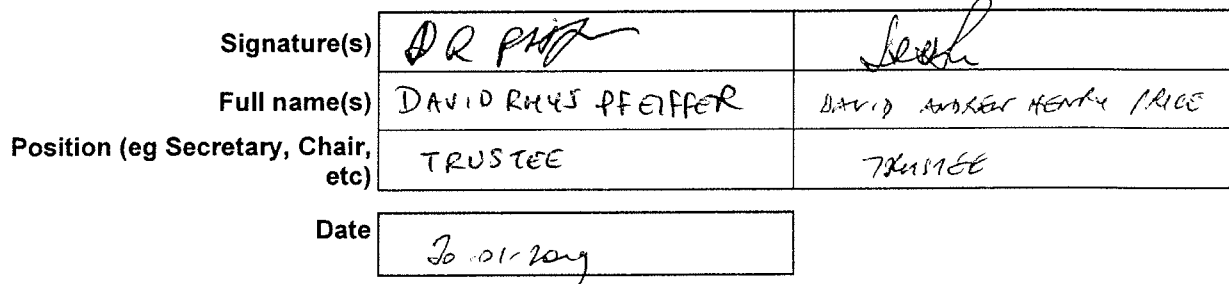 Signature(s) D R
Full name(s) DAVID RHYS PFEIFFER DAVID ANDREW HENRY PRICE
Position (eg Secretary, Chair,
etc) TRUSTEE TRUSTEE
Date